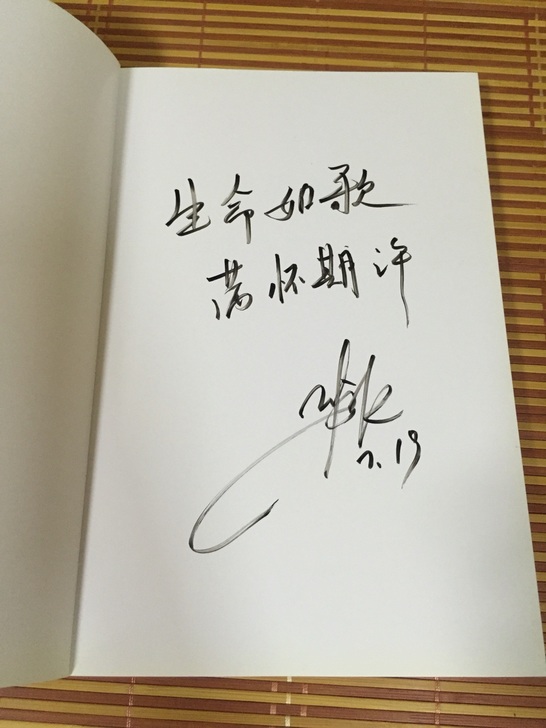 生命如歌
满怀期许
7.19